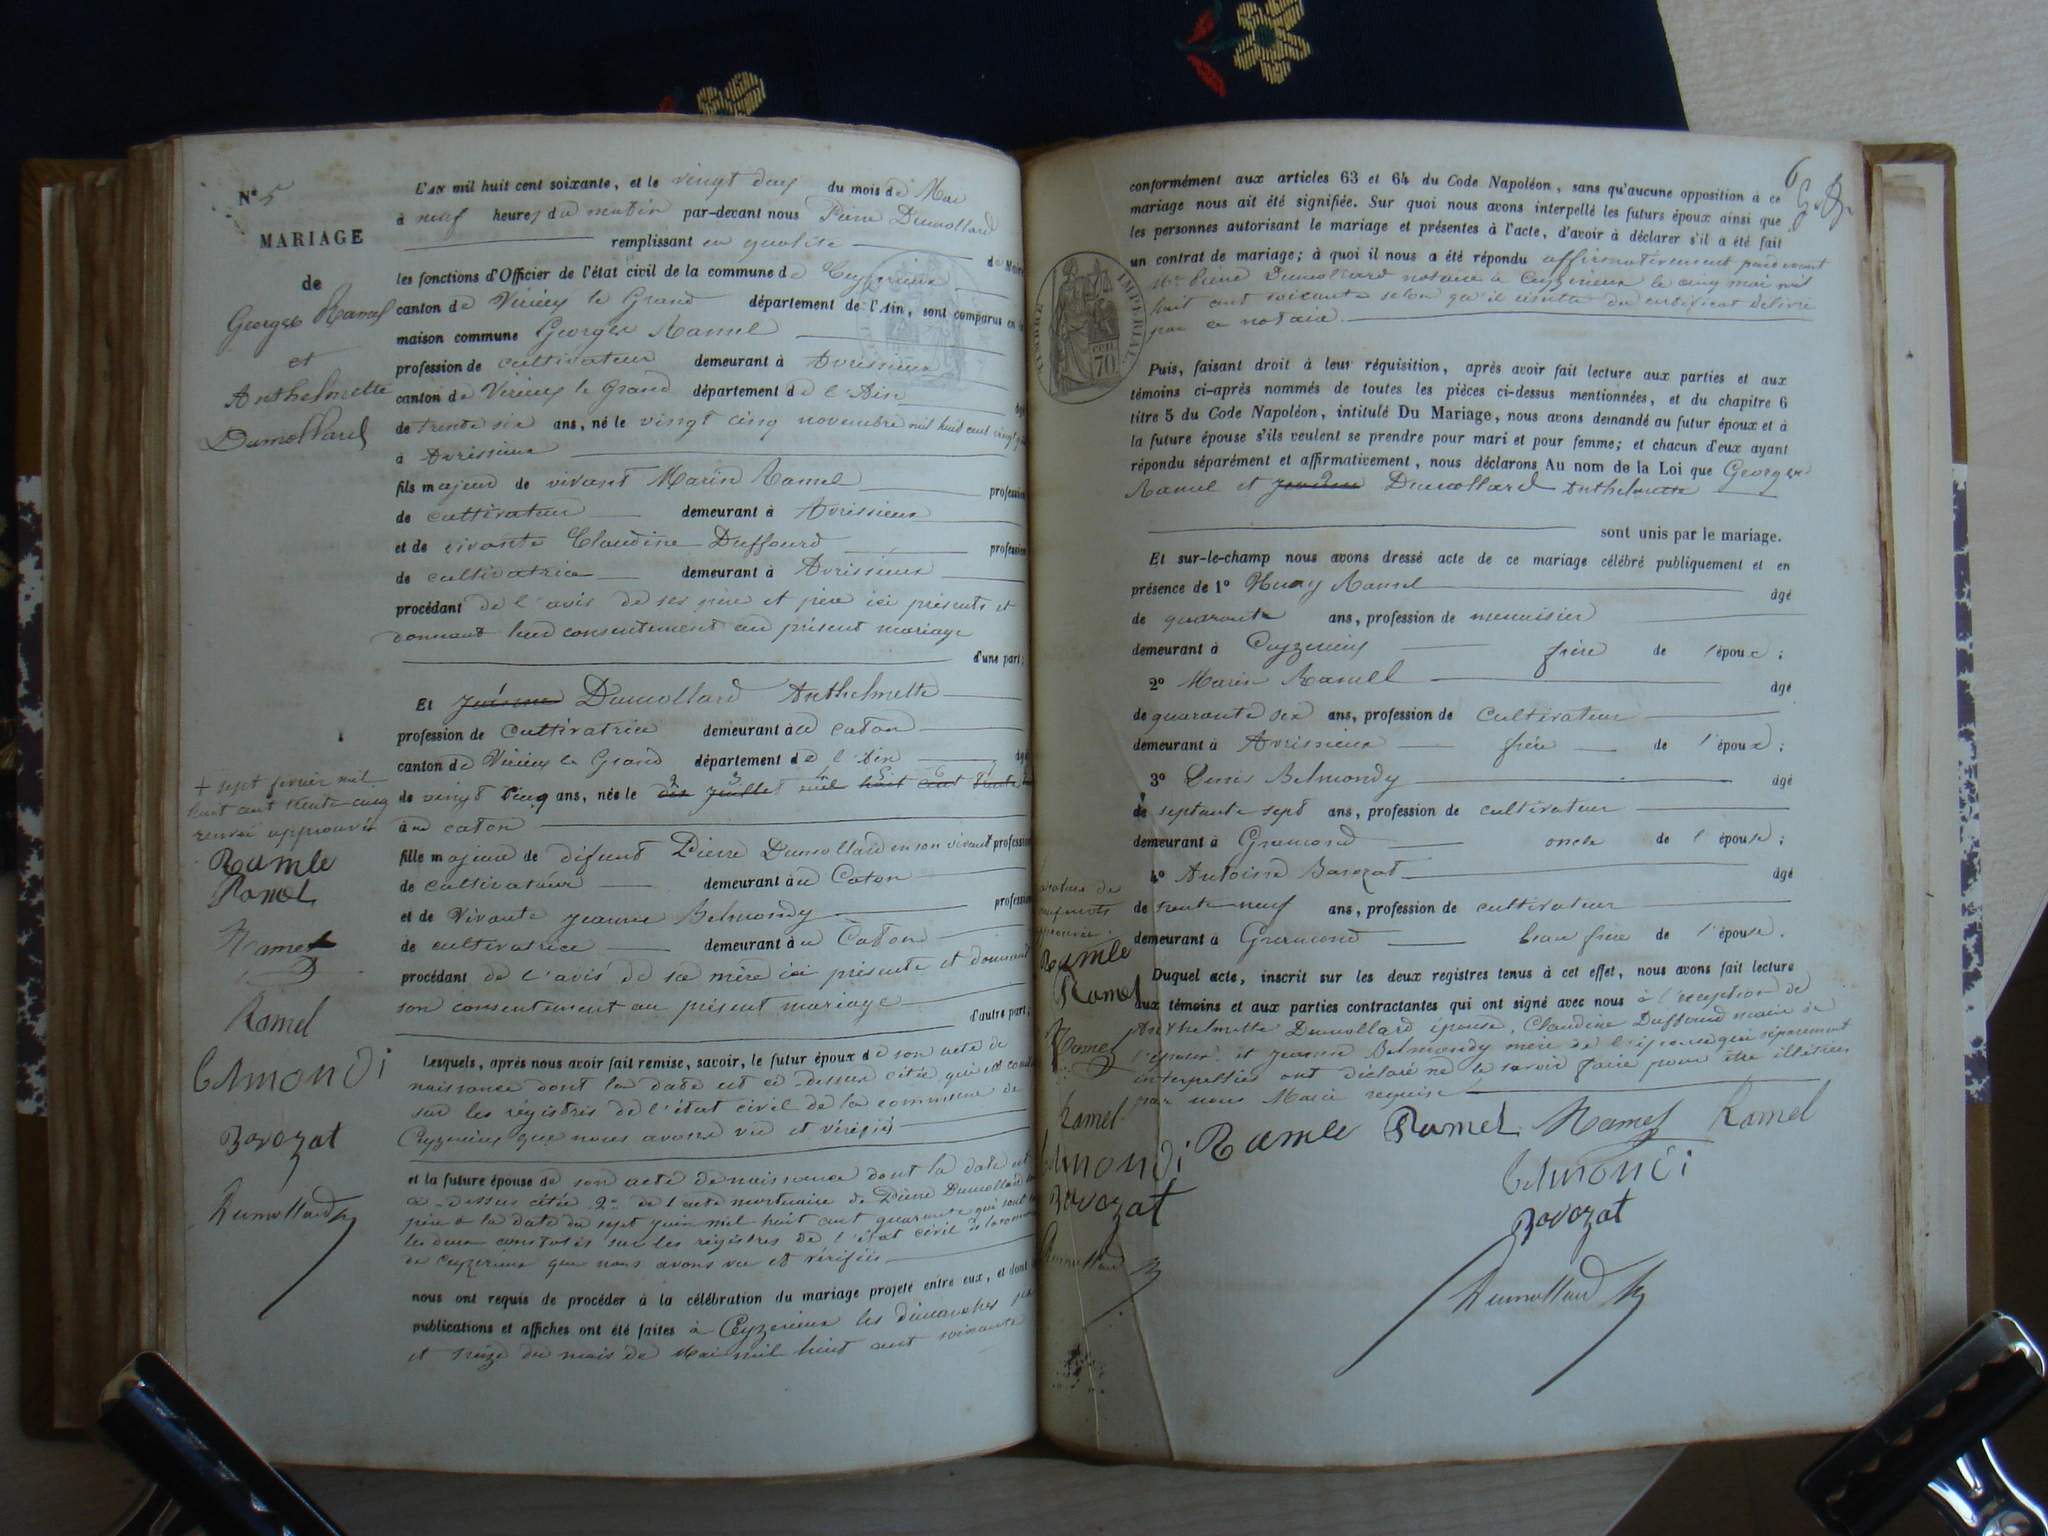 N° 5
MARIAGE
de
Georges Ramel
et
Anthelmette
Dumollard
L'AN mil huit cent soixante, et le vingt deux du mois de Mai
à neuf heures du matin par-devant nous Pierre Dumollard
remplissant en qualité de Maire
les fonctions d'Officier de l'état civil de la commune de Ceyzerieux
canton de Virieux le Grand département de l'Ain, sont comparus en la
maison commune Georges Ramel
profession de cultivateur demeurant à Avrissieux
canton de Virieux le Grand département de l'Ain âgé
de trente six ans, né le vingt cinq novembre mil huit cent vingt
à Avrissieux
fils majeur de vivant Marin Ramel profession
de cultivateur demeurant à Avrissieux
et de vivante Claudine Duffourd profession
de cultivatrice demeurant à Avrissieux
procédant de l'avis de ses père et mère ici présents et
donnant leur consentement au présent mariage
d'une part;
Et Dumollard Anthelmette
profession de cultivatrice demeurant à u caton
canton de Virieux le Grand département de l'Ain âgé
de vingt cinq ans, née le dix juillet mil huit cent trente
+ sept fevrier mil
huit cent trente cinq
renvoi approuvé
Ramle
Ramel
Ramel
Ramel
belmondi
Bavozat
Dumollard
à u caton
fille majeure de défunt Pierre Dumollard en son vivant profession
de cultivateur demeurant à u Caton
et de Vivante Jeanne Belmondy profession
de cultivatrice demeurant à u Caton
procédant de l'avis de sa mère ici présente et donnant
son consentement au présent mariage
d'autre part;
Lesquels, après nous avoir fait remise, savoir, le futur époux de son acte de
naissance dont la date est ci-dessus citée qui est
sur les régistres de l'état civil de la commune de
Ceyzerieux que nous avons vu et vérifié
et la future épouse de son acte de naissance dont la date est
ci-dessus citée 2° de l'acte mortuaire de Pierre Dumollard
père à la date du sept juin mil huit cent quarante qui sont
les deux constatés sur les régistres de l'état civil de la commune
de Ceyzerieux que nous avons vu et vérifiés
nous ont requis de procéder à la célébration du mariage projeté entre eux, et dont
publications et affiches ont été faites à Ceyzerieux les dimanches
et treize du mois de Mai mil huit cent soixante
6
conformément aux articles 63 et 64 du Code Napoléon, sans qu'aucune opposition à ce
mariage nous ait été signifiée. Sur quoi nous avons interpellé les futurs époux ainsi que
les personnes autorisant le mariage et présentes à l'acte, d'avoir à déclarer s'il a été fait
un contrat de mariage; à quoi il nous a été répondu affirmativement pardevant
Me Pierre Dumollard notaire à Ceyzerieux le cinq mai mil
huit cent soixante selon qu'il résulte du certificat délivré
par ce notaire.
TIMBRE IMPERIAL
CEN
70
Puis, faisant droit à leur réquisition, après avoir fait lecture aux parties et aux
témoins ci-après nommés de toutes les pièces ci-dessus mentionnées, et du chapitre 6
titre 5 du Code Napoléon, intitulé Du Mariage, nous avons demandé au futur époux et à
la future épouse s'ils veulent se prendre pour mari et pour femme; et chacun d'eux ayant
répondu séparément et affirmativement, nous déclarons Au nom de la Loi que Georges
Ramel et Dumollard Anthelmette
sont unis par le mariage.
Et sur-le-champ nous avons dressé acte de ce mariage célébré publiquement et en
présence de 1° Ramel âgé
de quarante ans, profession de menuisier
demeurant à Ceyzerieux frère de l'époux;
2° Marin Ramel âgé
de quarante six ans, profession de cultivateur
demeurant à Avrissieux frère de l'époux;
3° Denis Belmondy âgé
de septante sept ans, profession de cultivateur
demeurant à Gramond oncle de l'épouse;
4° Antoine Bavozat âgé
de trente neuf ans, profession de cultivateur
demeurant à Gramond beau frère de l'épouse.
Duquel acte, inscrit sur les deux registres tenus à cet effet, nous avons fait lecture
aux témoins et aux parties contractantes qui ont signé avec nous à l'exception de
Anthelmette Dumollard épouse, Claudine Duffourd mère de
l'époux et Jeanne Belmondy mère de l'épouse qui séparement
interpellées ont déclaré ne le savoir faire pour être illétrées
par nous Maire requise
Ramle
Ramel
Ramel
Ramel
belmondi
Bavozat
Dumollard
Ramle Ramel Ramel Ramel
belmondi
Bavozat
Dumollard